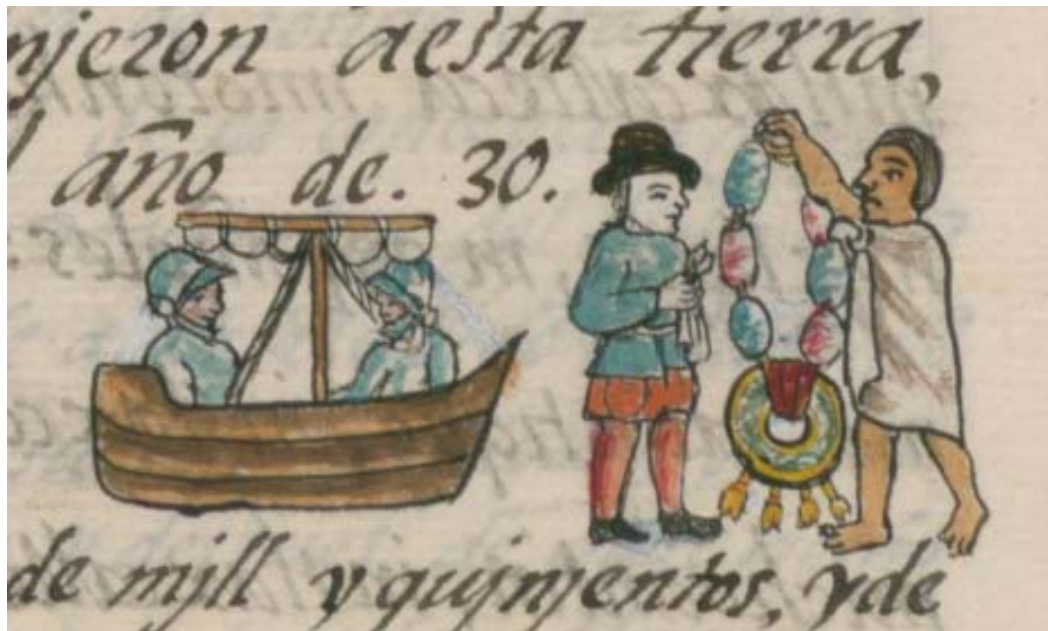 njeron aesta tierra,
año de. 30.
de mjll y qujnjentos, y de